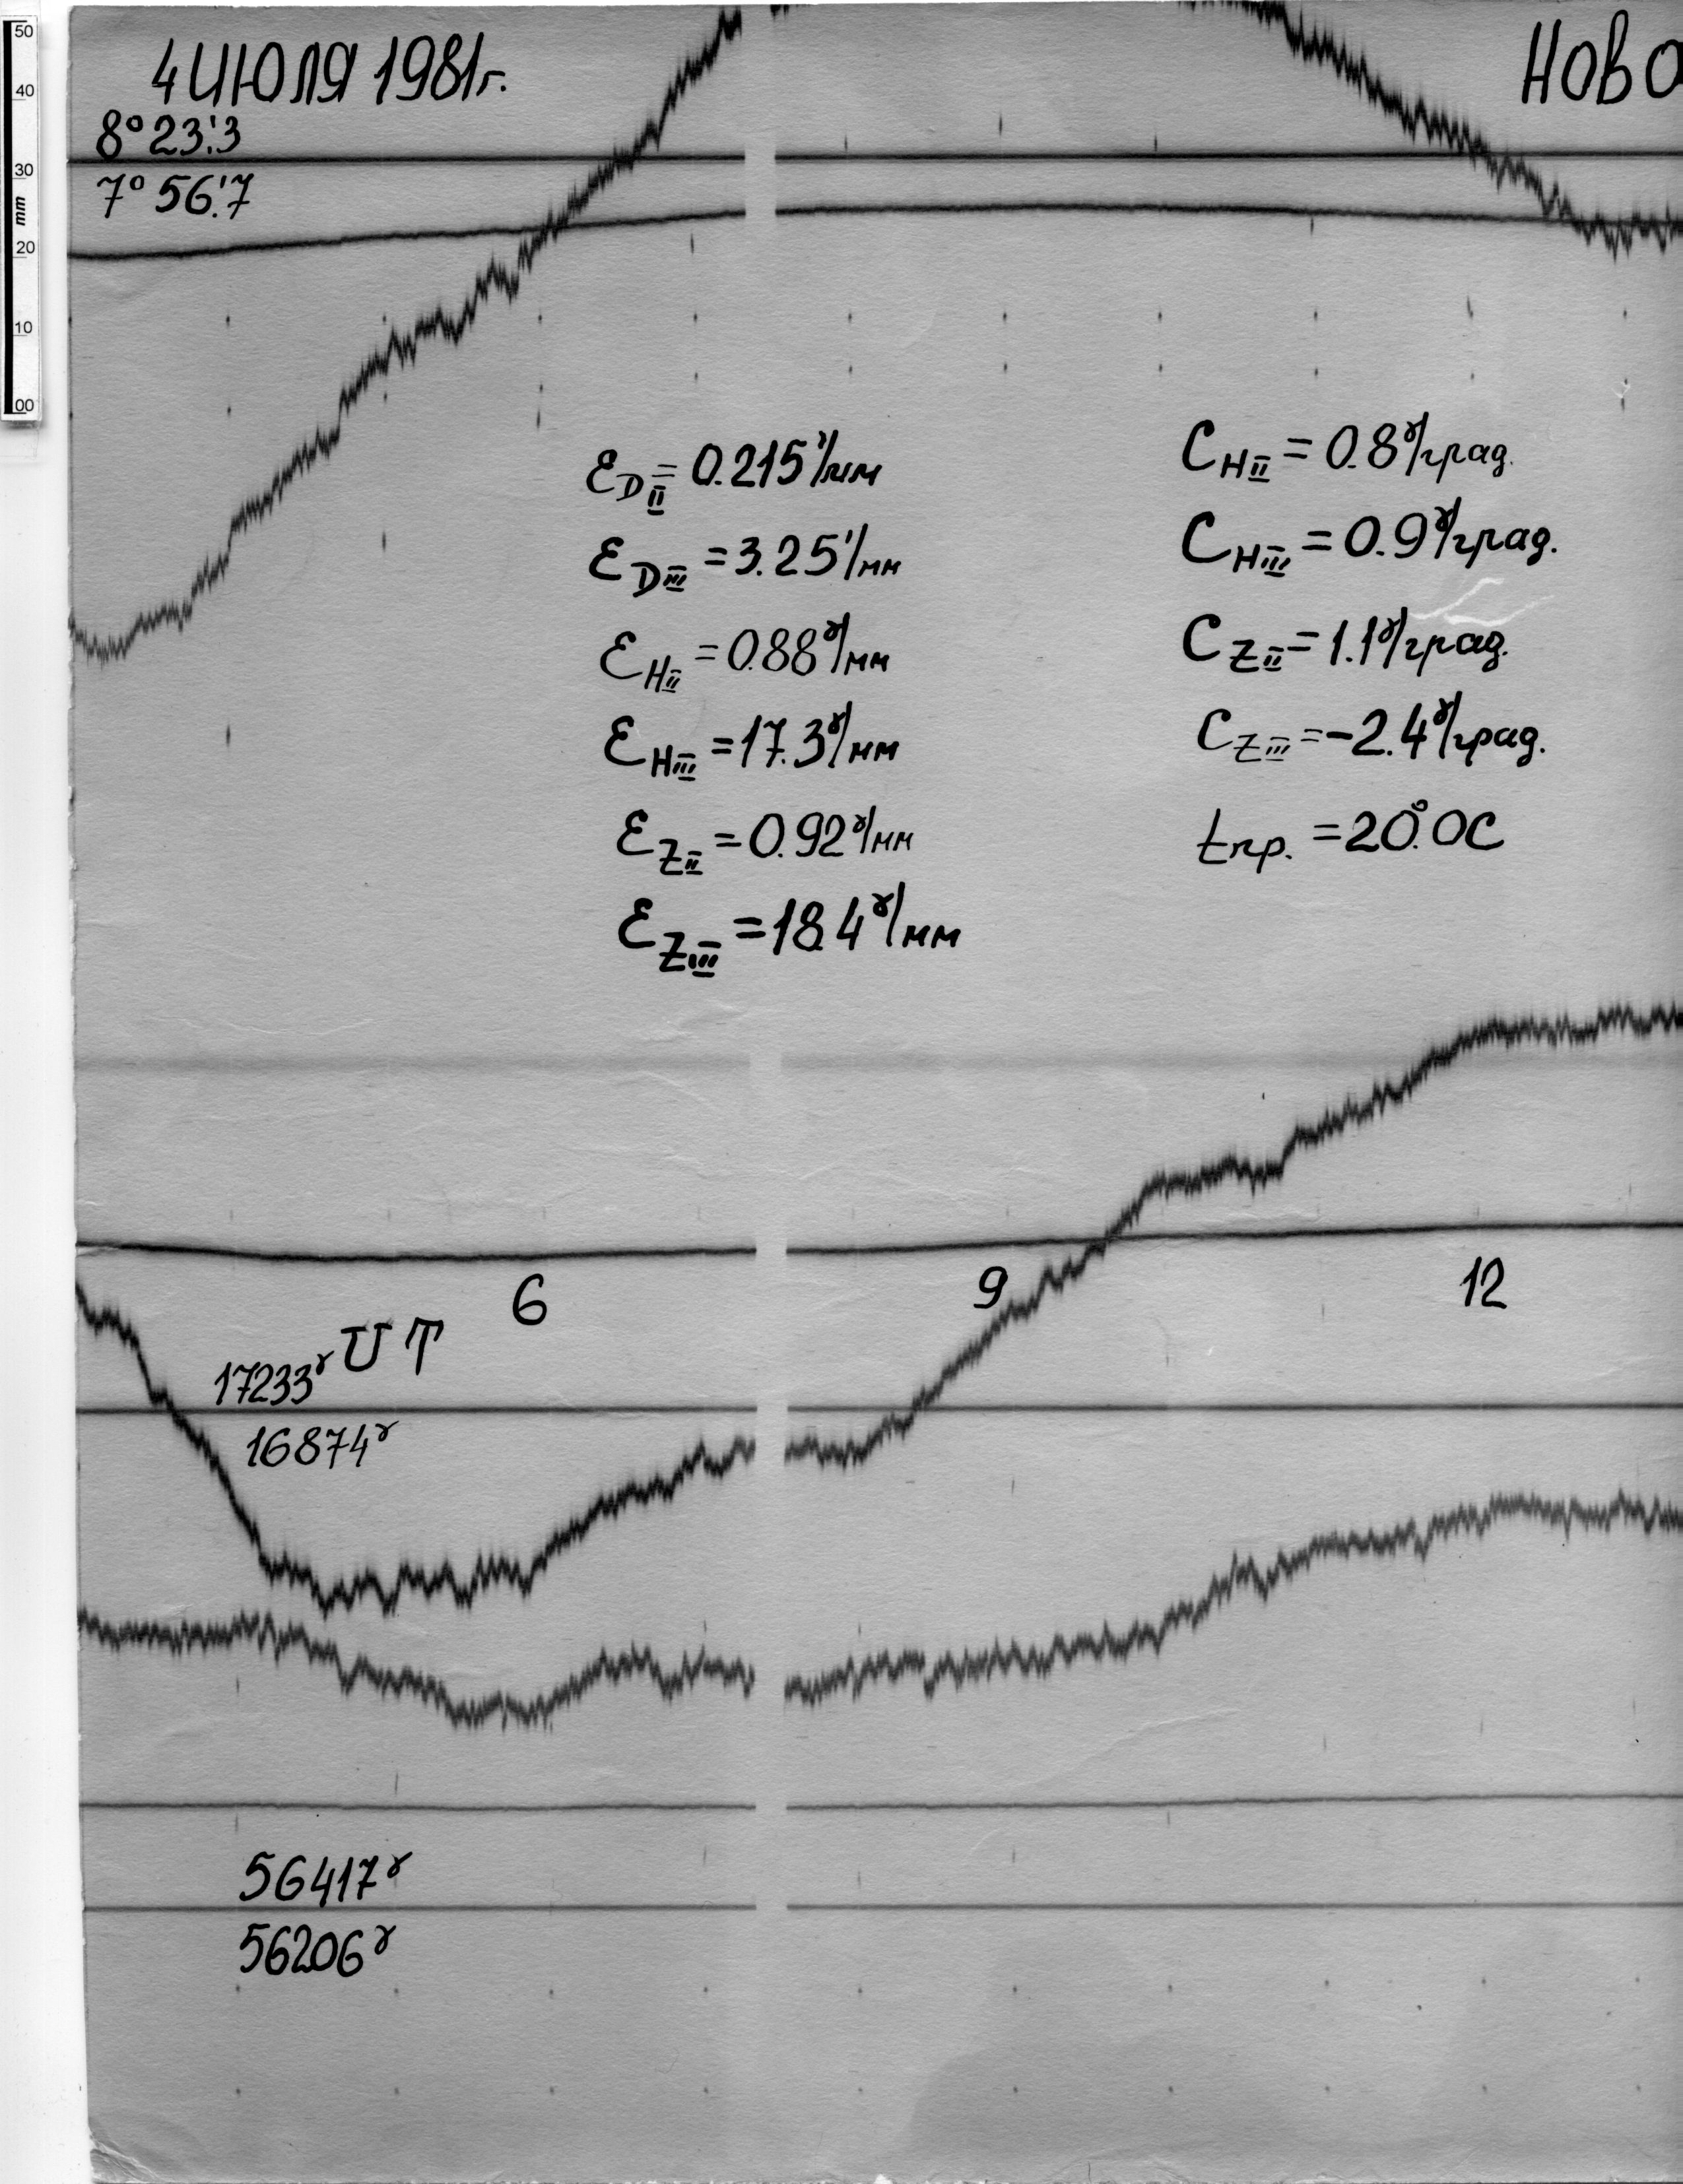 50
40
30
mm
20
10
00
4 ИЮЛЯ 1981г.
НОВО
8° 23.'3
7° 56.'7
ε D II = 0.215'/мм
ε D III = 3.25'/мм
ε H II = 0.88γ/мм
ε H III = 17.3γ/мм
ε Z II = 0.92γ/мм
ε Z III = 18.4γ/мм
C H II = 0.8γ/град.
C H III = 0.9γ/град.
C Z II = 1.1γ/град.
C Z III = -2.4γ/град.
tпр. = 20°.0C
6 9 12
UT
17233γ
16874γ
56417γ
56206γ